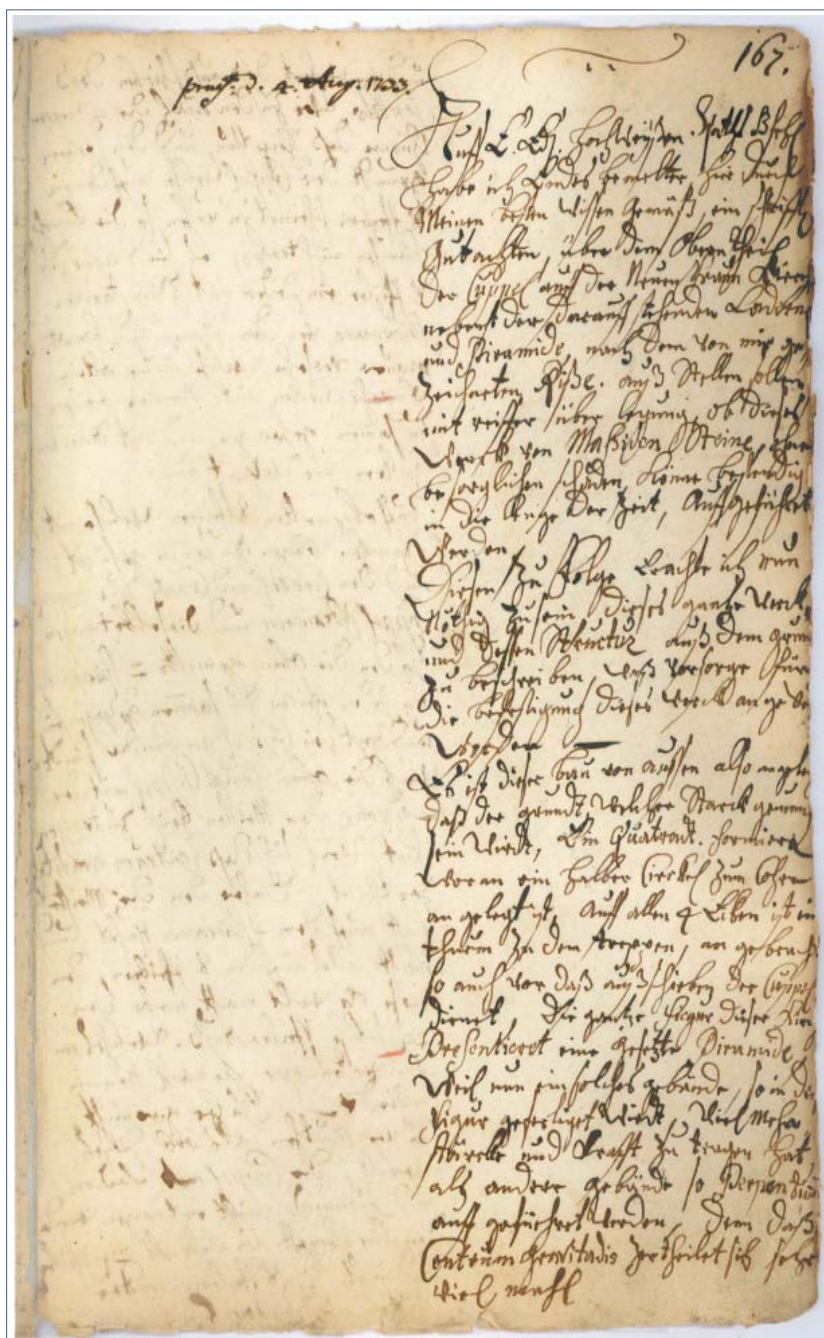 167.
præs: d. 4. Aug. 1733.
Auff E. E. Hochweißen Raths Befehl
habe ich Endes bemelter hier durch
Meinen besten Wissen Gemäß, ein schrifftl
Gutachten, über dem Obern theil
der Cuppel auff der Neuen Fraun Kirch
nebenst der darauff stehenden Lanterne
und Piramide, nach dem von mir ge
Zeichneten Riße. auß Stellen sollen
mit reiffer über legung, ob dieses
Werck von Maßiven Steine, ohne
besorglichen schaden, könne bestendig
in die lenge der Zeit, Auffgeführet
Werden
Diesen zu Folge Erachte ich nun
Nöthig zu sein dieses gantze Werck,
und deßen Structur auß dem grun
zu beschreiben, waß vorsorge für
die befestigung dieses Werck an ge
Worden
Es ist dieser bau von aussen also angele
daß der grundt, welcher Starck genung
sein Wirdt, Ein Quatrat. formieret
Woran ein halber Circkel zum Chor
an gelegt ist, Auff allen 4 Eken ist ein
thurm zu den treppen, an gebracht
so auch vor daß auß schieben der Cuppel
dienet, Die gantze Figur dieser Kir
Presentieret eine gesetzte Piramide,
Weil nun ein solches gebäude, so in der
Figur gefertiget Wirdt, Viel mehr
stärcke und Krafft zu tragen hat
alß andere gebäude so Perpenticul
auff geführet werden, Dem daß
Centrum Gravitadis zertheilet sich so
viel mahl